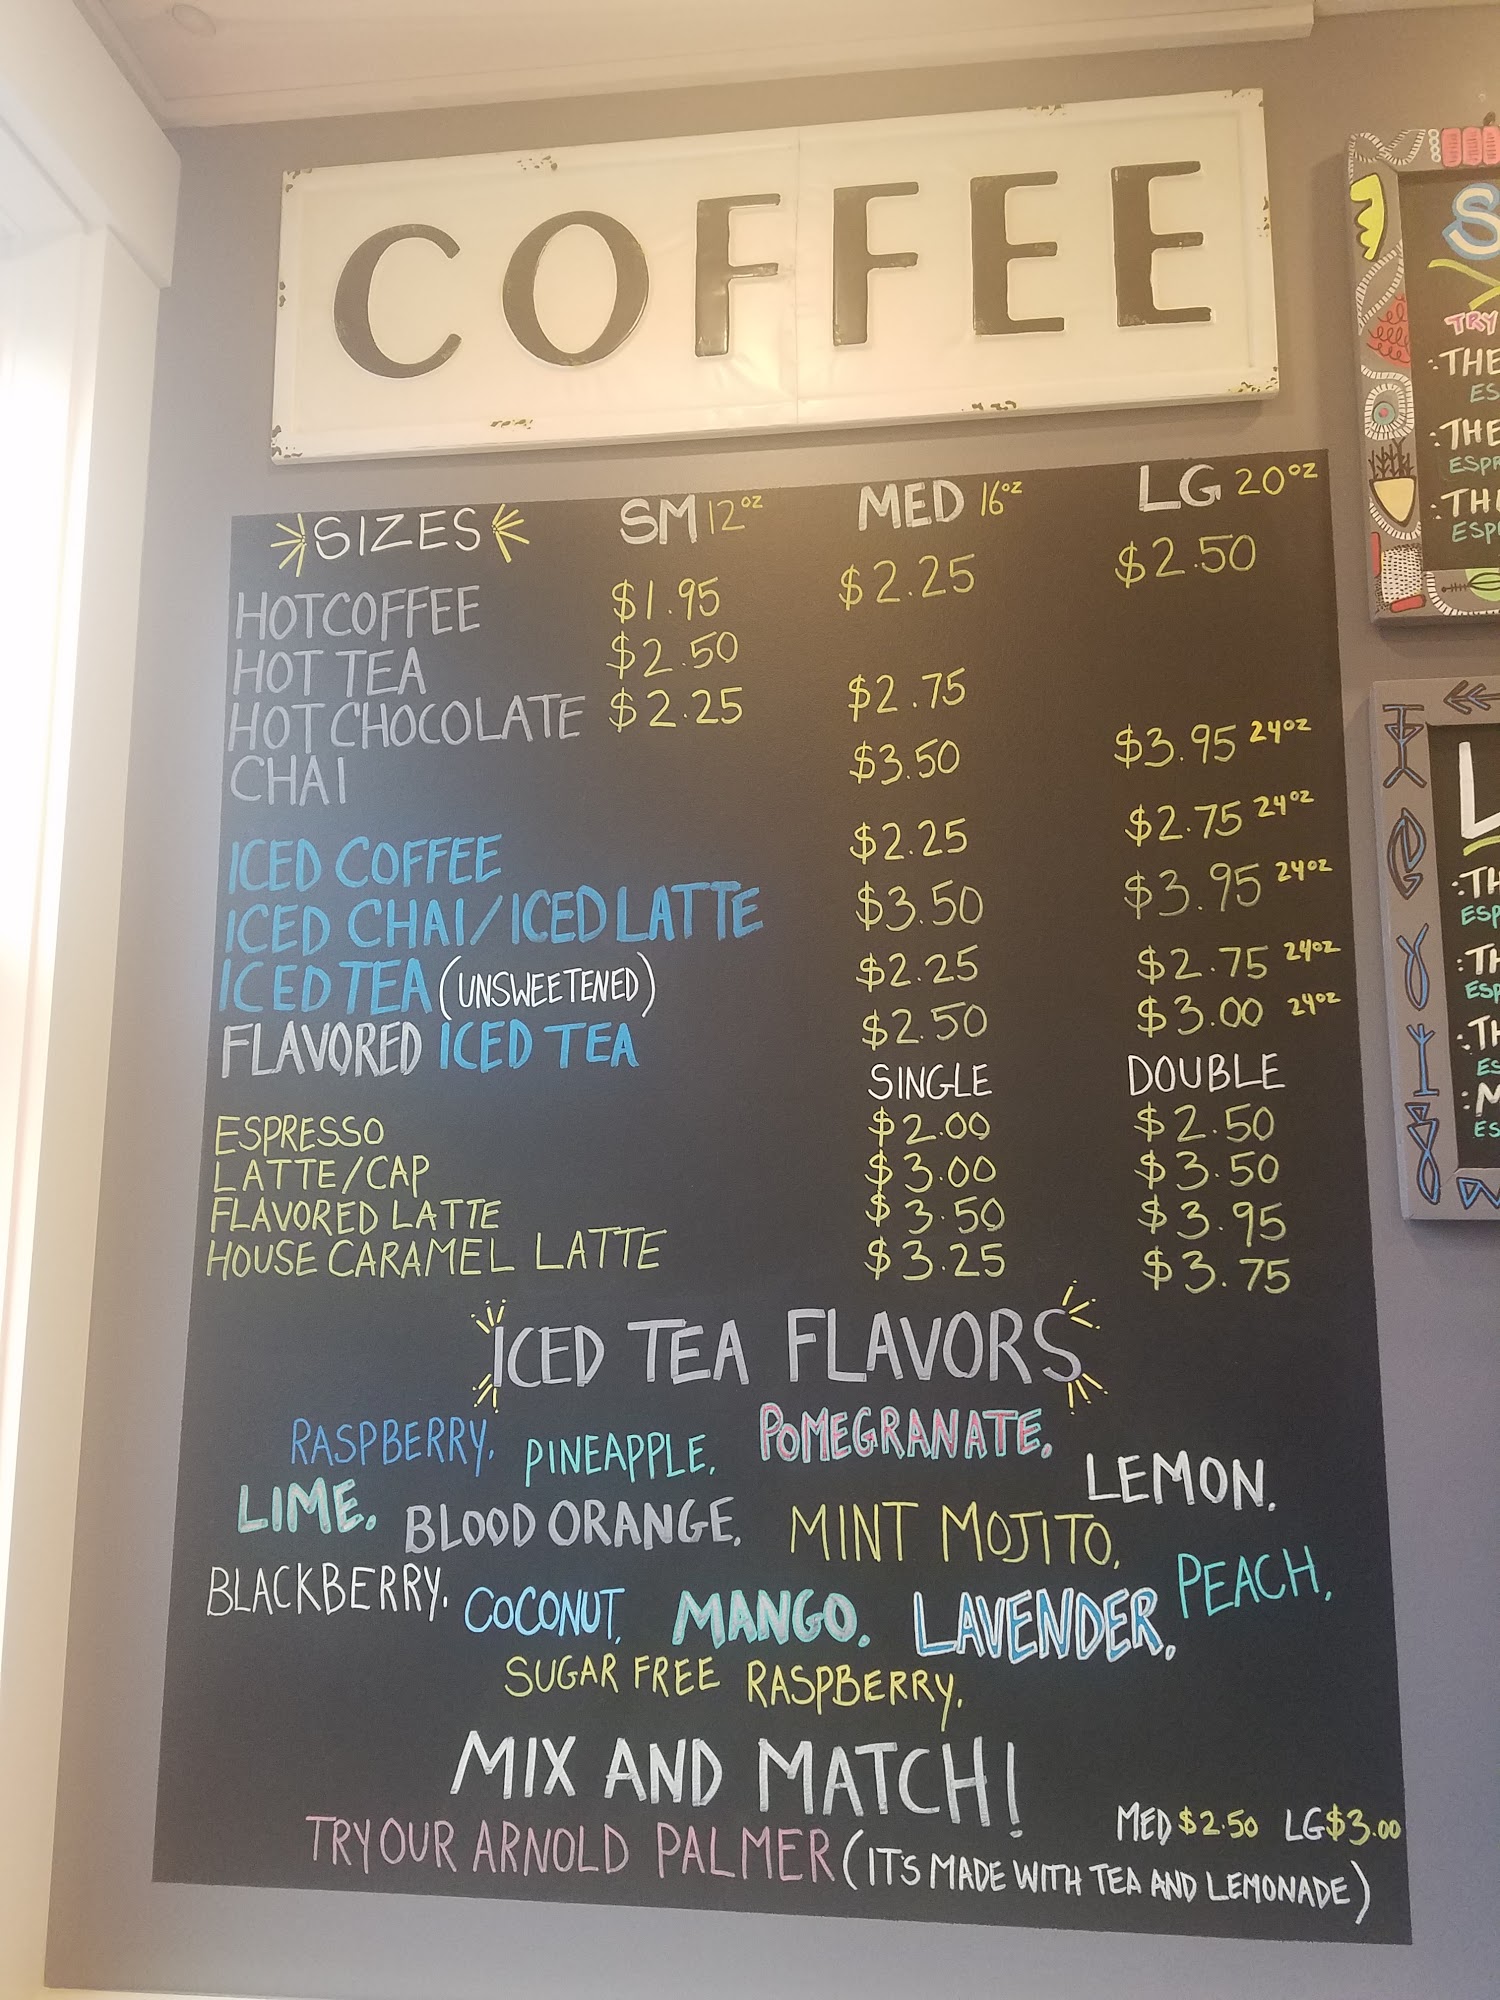 COFFEE
SIZES SM 12oz MED 16oz LG 20oz
HOT COFFEE $1.95 $2.25 $2.50
HOT TEA $2.50
HOT CHOCOLATE $2.25 $2.75
CHAI $3.50 $3.95 24oz
ICED COFFEE $2.25 $2.75 24oz
ICED CHAI/ICED LATTE $3.50 $3.95 24oz
ICED TEA (UNSWEETENED) $2.25 $2.75 24oz
FLAVORED ICED TEA $2.50 $3.00 24oz
SINGLE DOUBLE
ESPRESSO $2.00 $2.50
LATTE/CAP $3.00 $3.50
FLAVORED LATTE $3.50 $3.95
HOUSE CARAMEL LATTE $3.25 $3.75
ICED TEA FLAVORS
RASPBERRY, PINEAPPLE, POMEGRANATE,
LIME, BLOOD ORANGE, MINT MOJITO, LEMON,
BLACKBERRY, COCONUT, MANGO, LAVENDER, PEACH,
SUGAR FREE RASPBERRY,
MIX AND MATCH!
MED $2.50 LG $3.00
TRY OUR ARNOLD PALMER (IT'S MADE WITH TEA AND LEMONADE)
TRY
:THE
:THE